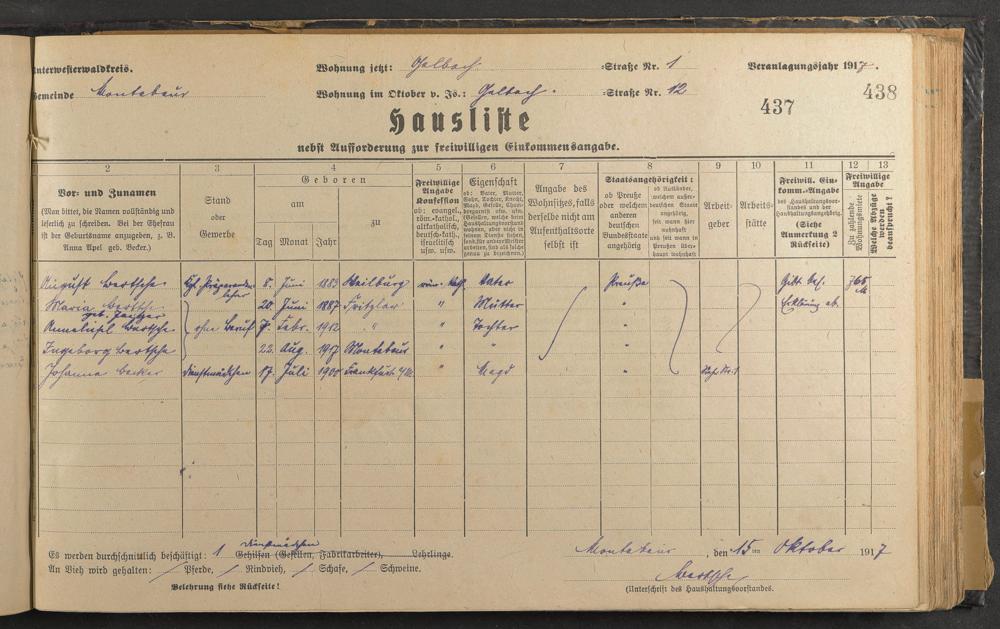 Unterwesterwaldkreis.
Wohnung jetzt: Gelbach -Straße Nr. 1
Veranlagungsjahr 1917.
Gemeinde Montabaur
Wohnung im Oktober v. Js.: Gelbach -Straße Nr. 12
437
438
Hausliste
nebst Aufforderung zur freiwilligen Einkommensangabe.
2 3 4 5 6 7 8 9 10 11 12 13
Vor- und Zunamen
(Man bittet, die Namen vollständig und
leserlich zu schreiben. Bei der Ehefrau
ist der Geburtsname anzugeben, z. B.
Anna Apel geb. Becker.)
Stand
oder
Gewerbe
Geboren
am
zu
Tag Monat Jahr
Freiwillige
Angabe
Konfession
ob: evangel.,
röm.-kathol.,
altkatholisch,
deutsch-kath.,
israelitisch
usw. usw.
Eigenschaft
ob: Vater, Mutter,
Sohn, Tochter, Knecht,
Angabe des
Wohnsitzes, falls
derselbe nicht am
Aufenthaltsorte
selbst ist
Staatsangehörigkeit:
ob Preuße
oder welchem
anderen
deutschen
Bundesstaate
angehörig
ob Ausländer,
welchem außer-
deutschen Staate
angehörig,
seit wann hier
wohnhaft
und seit wann in
Preußen über-
haupt wohnhaft
Arbeit-
geber
Arbeits-
stätte
Freiwill. Ein-
komm.-Angabe
des Haushaltungsvor-
standes und der
Haushaltungsangehörig.
(Siehe
Anmerkung 2
Rückseite)
Freiwillige
Angabe
Zu zahlende
Wohnungsmiete
Welche Abzüge
werden
beansprucht?
August Bertsche 8. Juni 1883 Weilburg Vater Preuße 765
M
Maria Bertsche 20 Juni 1887 Fritzlar " Mutter "
geb.
Anneliesel Bertsche ohne Beruf 7. Febr. 1912 " " Tochter "
Ingeborg Bertsche 22. Aug. 1917 Montabaur " " "
Johanna Becker Dienstmädchen 17. Juli 1900 Frankfurt a/M. " Magd "
Dienstmädchen
Es werden durchschnittlich beschäftigt: 1 Gehilfen (Gesellen, Fabrikarbeiter), Lehrlinge.
An Vieh wird gehalten: / Pferde, / Rindvieh, / Schafe, / Schweine.
Belehrung siehe Rückseite!
Montabaur, den 15ten Oktober 1917
Bertsche
(Unterschrift des Haushaltungsvorstandes.